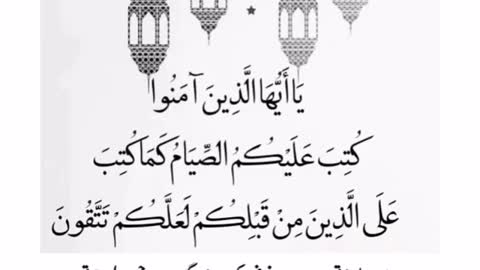 يَا أَيُّهَا الَّذِينَ آمَنُوا
كُتِبَ عَلَيْكُمُ الصِّيَامُ كَمَا كُتِبَ
عَلَى الَّذِينَ مِنْ قَبْلِكُمْ لَعَلَّكُمْ تَتَّقُونَ